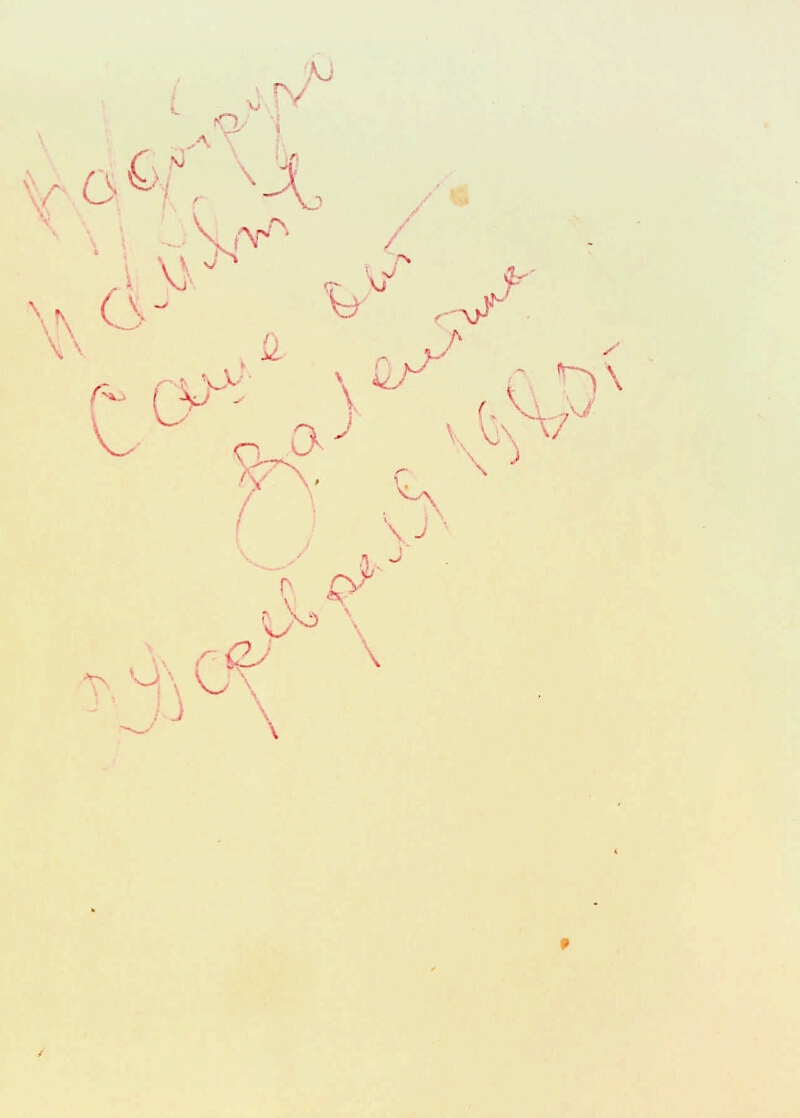 На добрую
память
Саше от
Валентина
февраля 1980 г